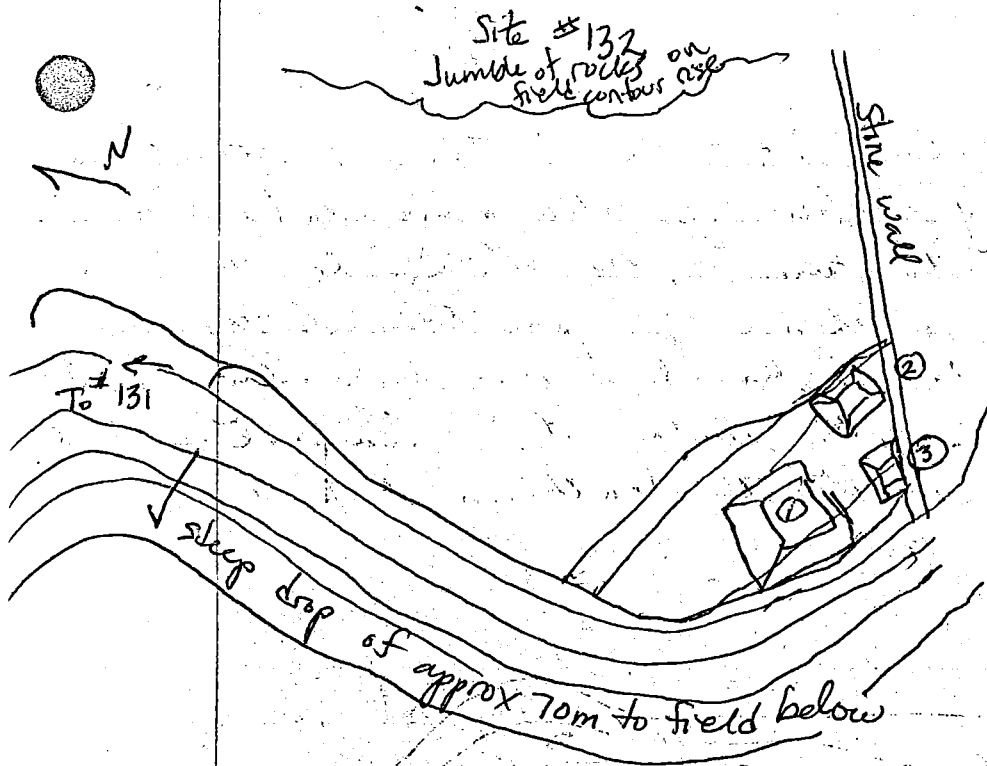 Site #132
Jumble of rocks on
field contour rise
N
Stone wall
2
To #131
3
1
steep drop of approx 70m to field below